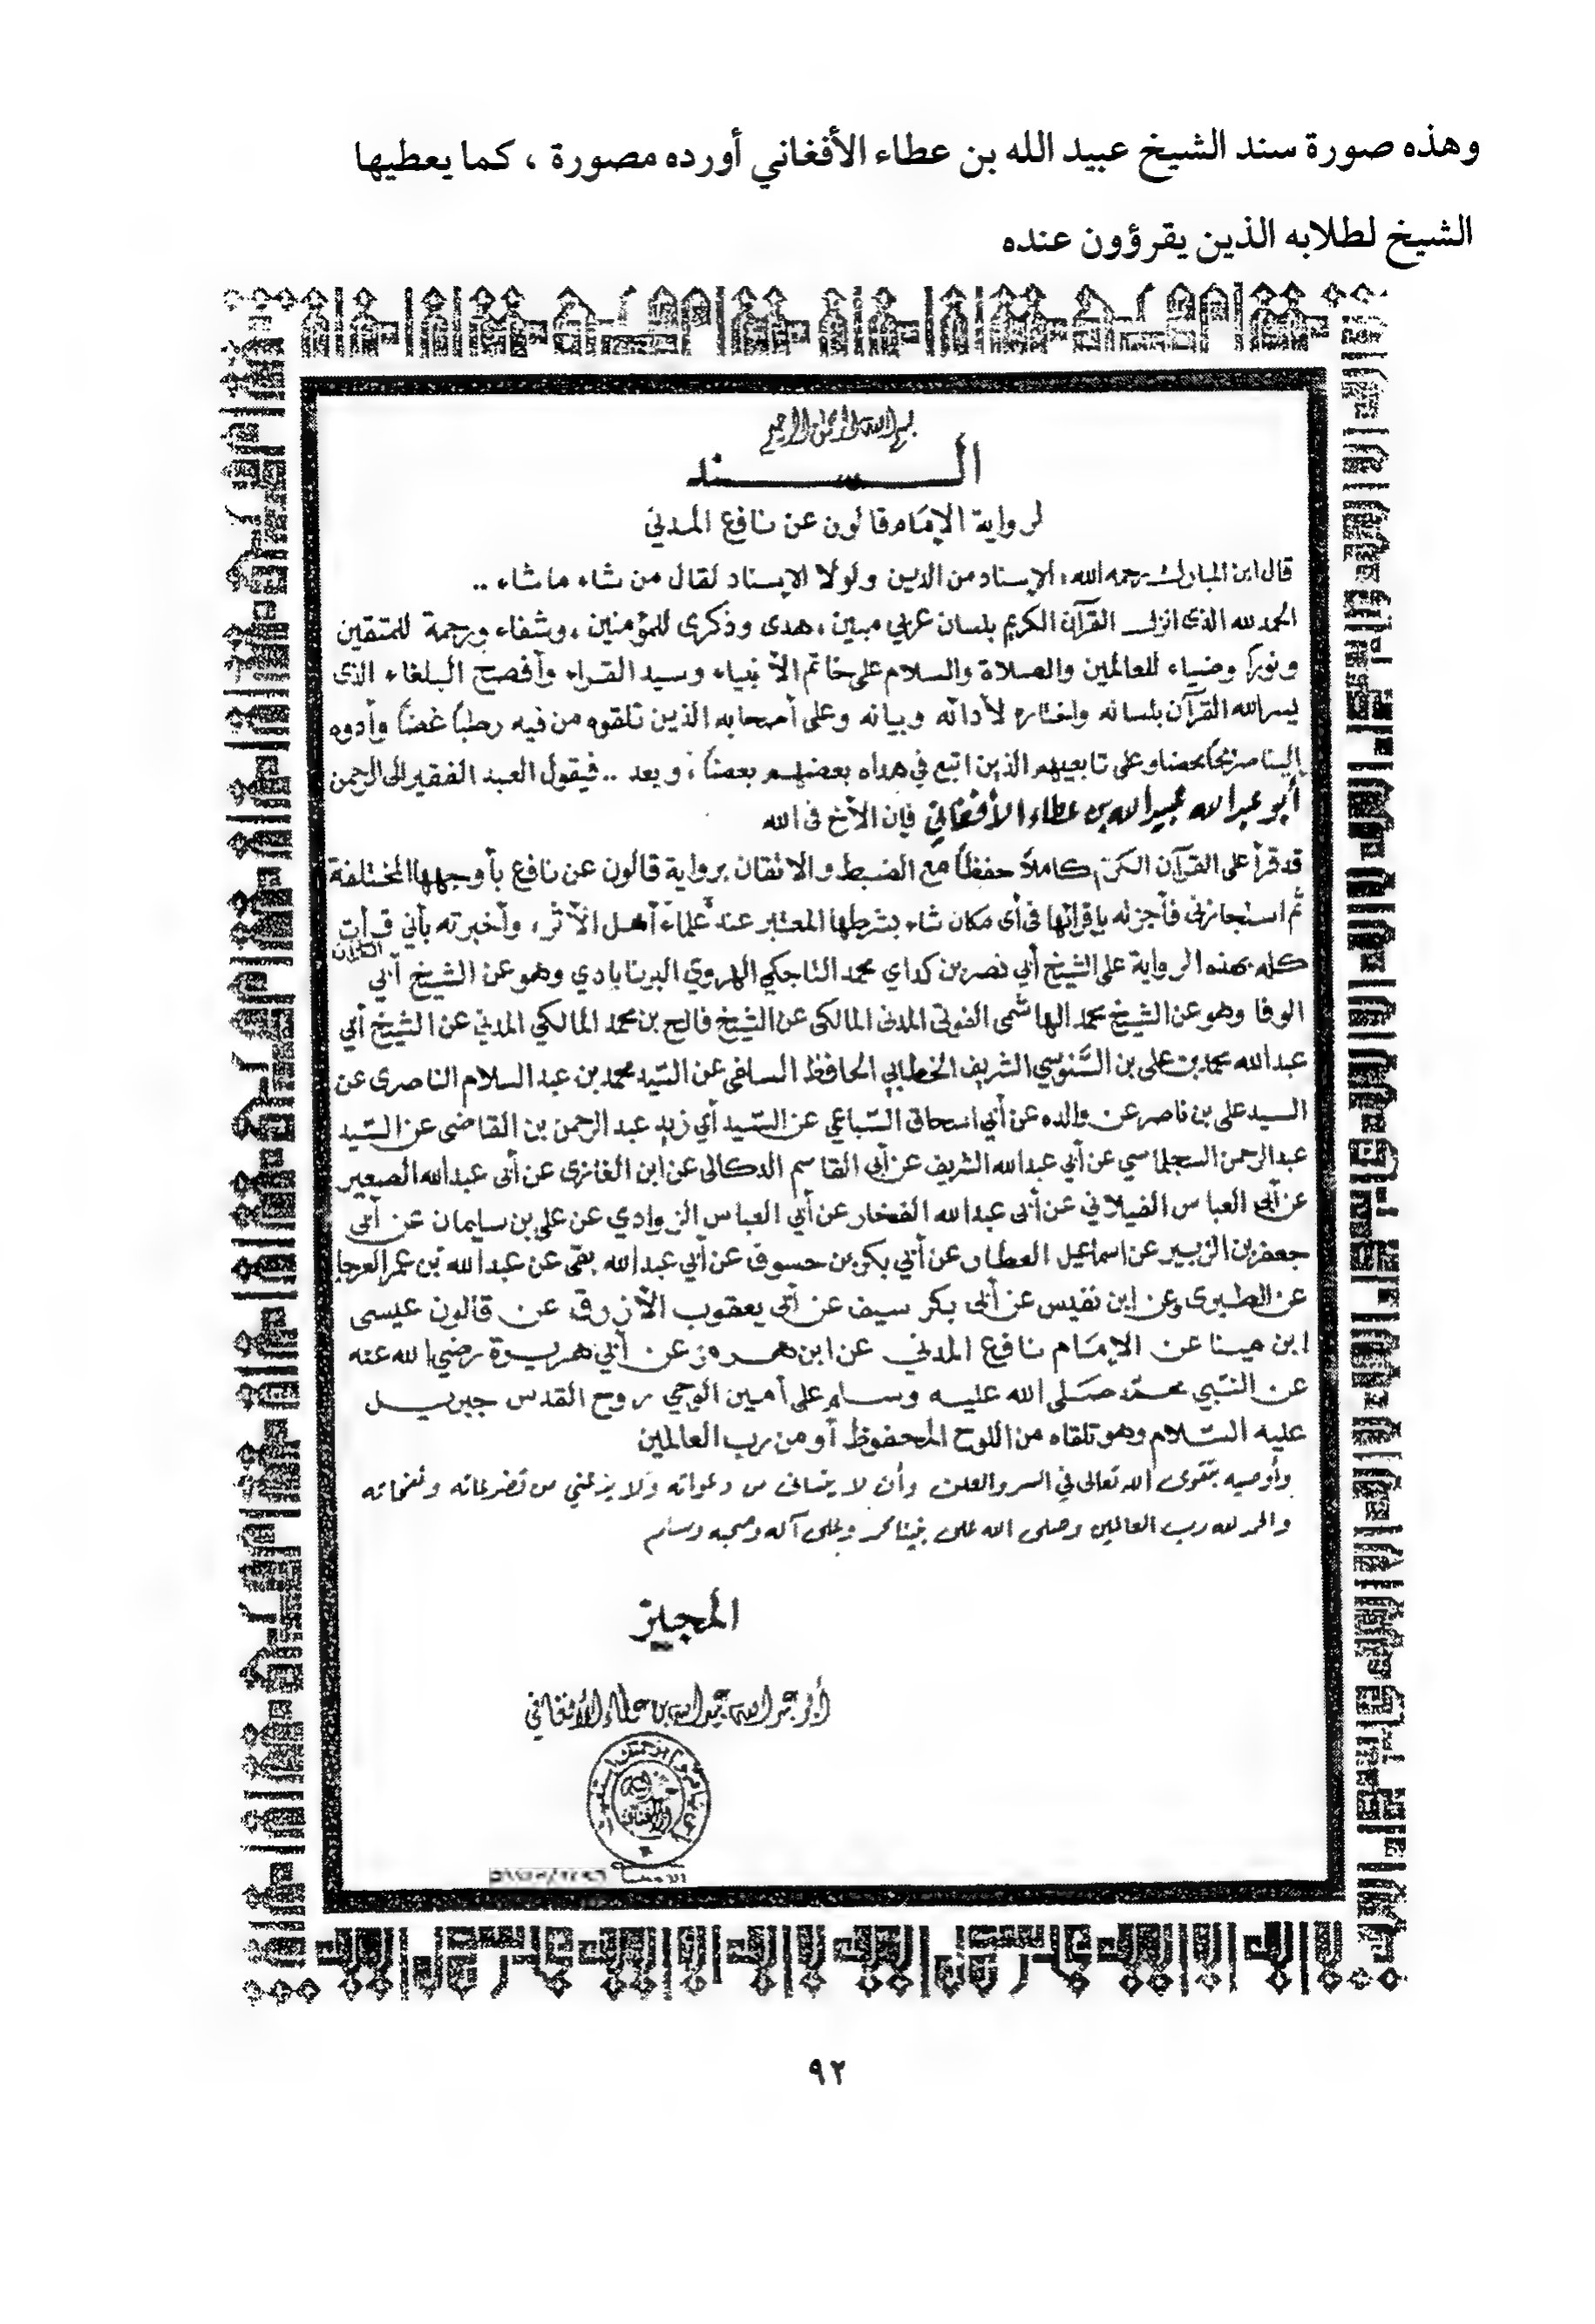 وهذه صورة سند الشيخ عبيد الله بن عطاء الأفغاني أورده مصورة ، كما يعطيها
الشيخ لطلابه الذين يقرؤون عنده
بسم الله الرحمن الرحيم
الســـند
لرواية الإمام قالون عن نافع المدني
قال ابن المبارك رحمه الله: الإسناد من الدين ولولا الإسناد لقال من شاء ما شاء ..
الحمد لله الذى انزل القرآن الكريم بلسان عربي مبين، هدى وذكرى للمؤمنين، وشفاء ورحمة للمتقين
ونورًا وضياء للعالمين والصلاة والسلام على خاتم الأنبياء وسيد القراء وأفصح البلغاء الذى
يسر الله القرآن بلسانه واختاره لأدائه وبيانه وعلى أصحابه الذين تلقوه من فيه رطباً غضاً وأدوه
إلينا صريحًا محضا وعلى تابعيهم الذين اتبع في هداه بعضهم بعضاً، وبعد .. فيقول العبد الفقير الى الرحمن
أبو عبد الله عبيد الله بن عطاء الأفغاني فإن الأخ فى الله
قد قرأ على القرآن الكريم كاملاً حفظاً مع الضبط والاتقان برواية قالون عن نافع بأوجهها المختلفة
ثم استجازنى فأجزته بإقرائها فى أى مكان شاء بشرطها المعتبر عند علماء أهل الأثر، وأخبرته بأني قرأت القرآن
كله بهذه الرواية على الشيخ أبي نصر بن كداي محمد التاجكي الهروي البرنابادي وهو عن الشيخ أبي
الوفا وهو عن الشيخ محمد الهاشمى الفوتى المدنى المالكى عن الشيخ فالح بن محمد المالكي المدني عن الشيخ أبي
عبد الله محمد بن على بن السنوسي الشريف الخطابي الحافظ السلفى عن السيد محمد بن عبد السلام الناصرى عن
السيد على بن ناصر عن والده عن أبي اسحاق السباعي عن السيد أبي زيد عبد الرحمن بن القاضى عن السيد
عبد الرحمن السجلماسي عن أبي عبد الله الشريف عن أبي القاسم الدكالى عن ابن الغازى عن أبى عبد الله الصغير
عن أبي العباس الفيلالي عن أبى عبد الله الفخار عن أبي العباس الزواوي عن على بن سليمان عن أبى
جعفر بن الزبير عن اسماعيل العطار عن أبي بكر بن حسوق عن أبي عبد الله بقى عن عبد الله بن عمر العرجا
عن الطبرى وعن ابن نفيس عن أبى بكر سيف عن أبي يعقوب الأزرق عن قالون عيسى
ابن مينا عن الإمام نافع المدني عن ابن هرمز عن أبي هريرة رضي الله عنه
عن النبي محمد صلى الله عليه وسلم على أمين الوحي روح القدس جبريل
عليه السلام وهو تلقاه من اللوح المحفوظ أو من رب العالمين
وأوصيه بتقوى الله تعالى في السر والعلن وأن لا ينسانى من دعواته ولا من تضرعاته ونفحاته
والحمد لله رب العالمين وصلى الله على نبينا محمد وعلى آله وصحبه وسلم
المجيز
أبو عبد الله عبيد الله بن عطاء الأفغاني
٩٢